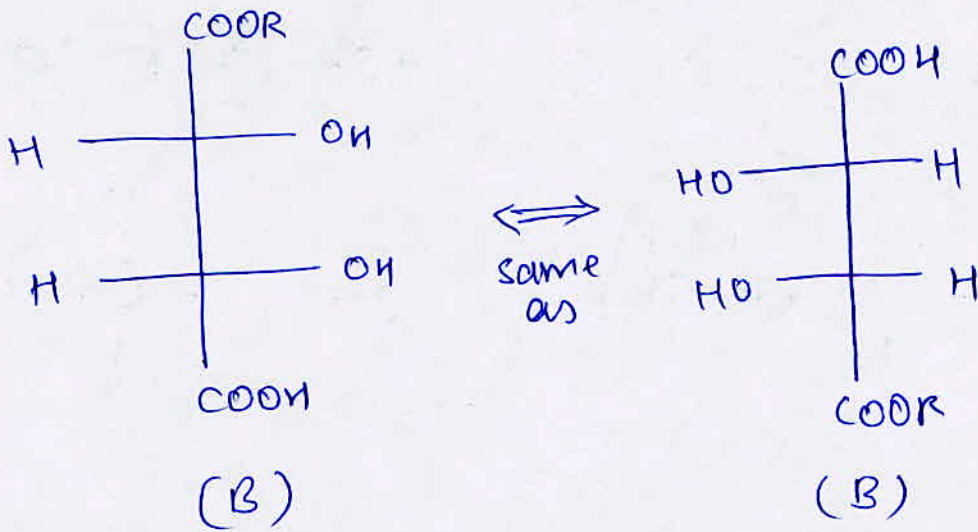 COOR
H OH
H OH
COOH
(B)
same
as
COOH
HO H
HO H
COOR
(B)